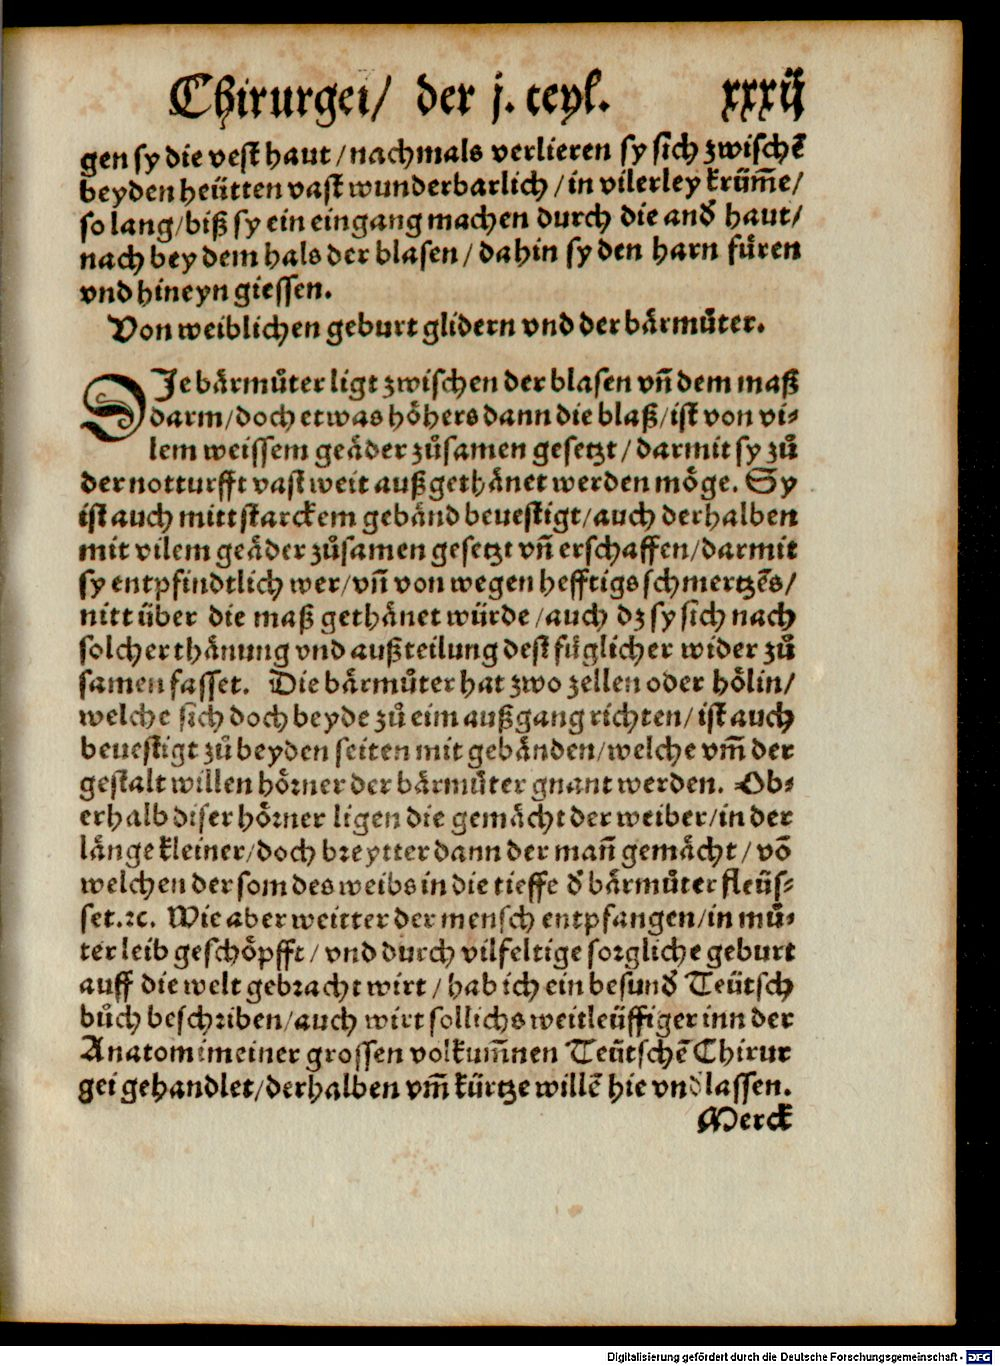 Chirurgei/ der j. teyl. xxxij
gen sy die vest haut/nachmals verlieren sy sich zwischē
beyden heütten vast wunderbarlich/in vilerley krüm̄e/
so lang/biß sy ein eingang machen durch die and̕ haut/
nach bey dem hals der blasen/dahin sy den harn fůren
vnd hineyn giessen.
Von weiblichen geburt glidern vnd der bårmůter.
DIe bårmůter ligt zwischen der blasen vn̄ dem maß
darm/doch etwas höhers dann die blaß/ist von vi⸗
lem weissem geäder zůsamen gesetzt/darmit sy zů
der notturfft vast weit außgethånet werden möge. Sy
ist auch mitt starckem gebånd beuestigt/auch derhalben
mit vilem geäder zůsamen gesetzt vn̄ erschaffen/darmit
sy entpfindtlich wer/vn̄ von wegen hefftigs schmertzēs/
nitt über die maß gethånet würde/auch dz sy sich nach
solcher thånung vnd außteilung dest fůglicher wider zů
samen fasset. Die bårmůter hat zwo zellen oder hölin/
welche sich doch beyde zů eim außgang richten/ist auch
beuestigt zů beyden seiten mit gebånden/welche vm̄ der
gestalt willen hörner der bårmůter gnant werden. Ob⸗
erhalb diser hörner ligen die gemåcht der weiber/in der
långe kleiner/doch breytter dann der man̄ gemåcht/vō
welchen der som des weibs in die tieffe d̕ bårmůter fleüs⸗
set.ꝛc. Wie aber weitter der mensch entpfangen/in mů⸗
ter leib geschöpfft/vnd durch vilfeltige sorgliche geburt
auff die welt gebracht wirt/hab ich ein besund̕ Teütsch
bůch beschriben/auch wirt sollichs weitleüffiger inn der
Anatomi meiner grossen volkum̄nen Teütschē Chirur
gei gehandlet/derhalben vm̄ kürtze willē hie vnd lassen.
Merck
Digitalisierung gefördert durch die Deutsche Forschungsgemeinschaft - DFG